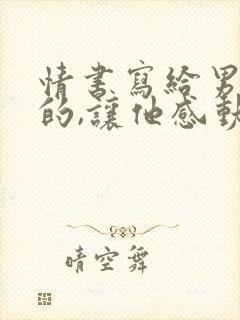 情書寫給男
的,讓他感動
晴空舞